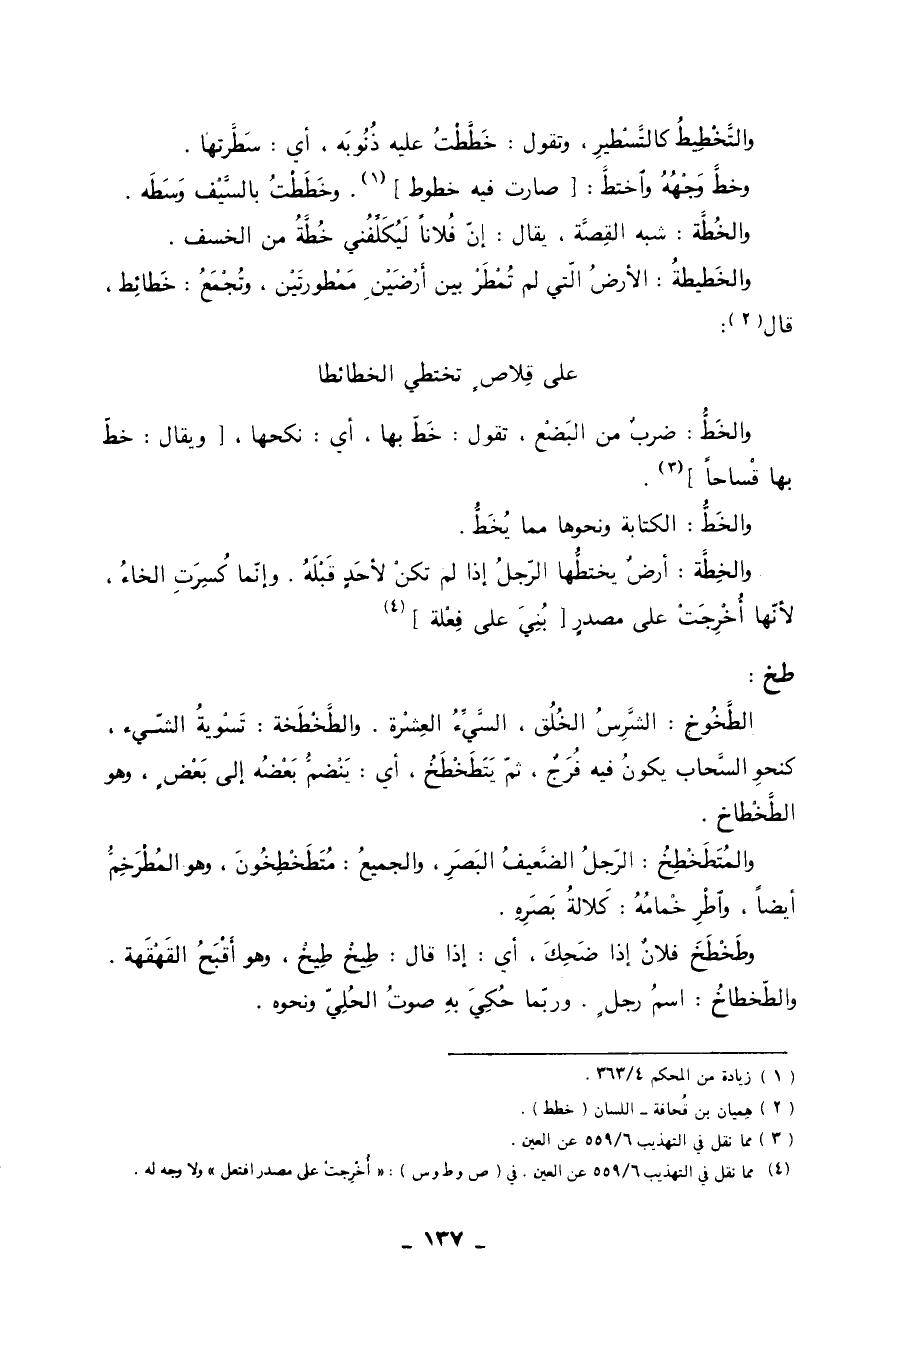 والتَّخْطِيطُ كالتَّسْطيرِ ، وتقول : خَطَّطْتُ عليه ذُنُوبَه ، أي : سَطَّرتها .
وخطَّ وَجْهُهُ وٱختطَّ : [ صارت فيه خطوط ] (١) . وخَطَطْتُ بالسَّيْف وَسَطَه .
والخُطَّة : شبه القِصَّة ، يقال : إنّ فُلاناً لَيُكَلِّفُني خُطَّةُ من الخسف .
والخَطيطةُ : الأرضُ الّتي لم تُمْطَرْ بين أَرْضَيْنِ مَمْطورتَيْن ، وتُجْمَعُ : خَطائِط ،
قال(٢):
على قِلاصٍ تختطي الخطائطا
والخَطُّ : ضربٌ من البَضْع ، تقول : خَطّ بها ، أي : نكحها ، [ ويقال : خطّ
بها قْساحاً ](٣) .
والخَطُّ : الكتابة ونحوها مما يُخَطُّ .
والخِطَّة : أرضٌ يختطُّها الرّجلُ إذا لم تكنْ لأحَدٍ قَبْلَهُ . وإنّما كُسِرَتِ الخاءُ ،
لأنّها أُخْرِجَتْ على مصدرٍ [ بُنِيَ على فِعْلة ](٤)
طخ :
الطَّخُوخ : الشَّرِسُ الخُلُق ، السَّيِّءُ العِشْرة . والطَّخْطَخة : تَسْويةُ الشّيء ،
كنحوِ السَّحاب يكونُ فيه فُرَجٌ ، ثمّ يَتَطَخْطَخُ ، أي : يَنْضمُّ بَعْضُه إلى بَعْضٍ ، وهو
الطَّخْطاخ .
والمُتَطَخْطِخُ : الرّجلُ الضَّعيفُ البَصَرِ ، والجميعُ : مُتَطَخْطِخُونَ ، وهو المُطْرَخِمُّ
أيضاً ، وٱطْرِ خْمامُهُ : كَلالةُ بَصَرِهِ .
وطَخْطَخَ فلانٌ إذا ضَحِكَ ، أي : إذا قال : طِيخْ طِيخْ ، وهو أَقْبَحُ القَهْقَهة .
والطّخطاخُ : اسمُ رجلٍ . وربّما حُكِيَ بهِ صوتُ الحُلِيّ ونحوه .
( ١ ) زيادة من المحكم ٣٦٣/٤ .
( ٢ ) هِميان بن قُحافة ـ اللسان ( خطط ) .
( ٣ ) مما نقل في التهذيب ٥٥٩/٦ عن العين .
(٤) مما نقل في التهذيب ٥٥٩/٦ عن العين . في ( ص و ط و س ) : « أُخْرِجتْ على مصدر افتعل » ولا وجه له .
ـ ١٣٧ ـ